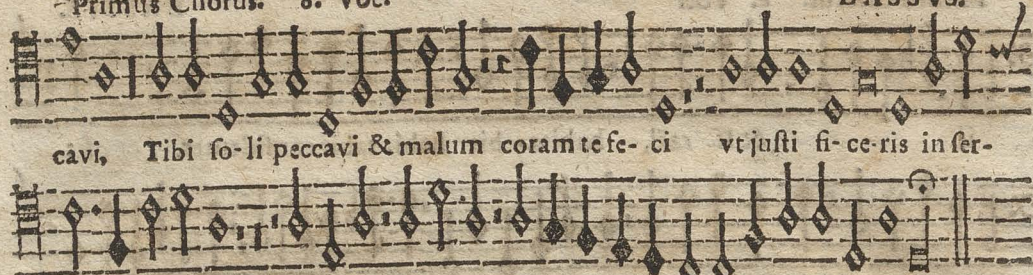 Primus Chorus. 8. Voc. LASSVS.
cavi, Tibi so-li peccavi & malum coram te fe- ci vt justi fi-ce-ris in ser-